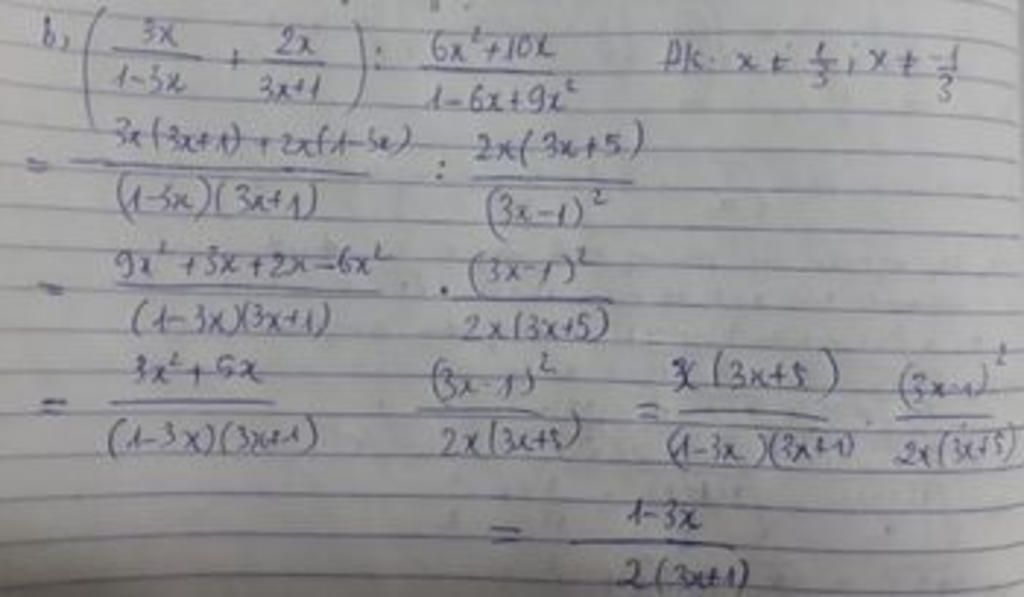 b, (3x/(1-3x) + 2x/(3x+1)) : (6x²+10x)/(1-6x+9x²) Đk: x ≠ 1/3; x ≠ -1/3
= (3x(3x+1) + 2x(1-3x))/((1-3x)(3x+1)) : 2x(3x+5)/(3x-1)²
= (9x²+3x+2x-6x²)/((1-3x)(3x+1)) . (3x-1)²/(2x(3x+5))
= (3x²+5x)/((1-3x)(3x+1)) (3x-1)²/(2x(3x+5)) = x(3x+5)/((1-3x)(3x+1)) . (3x-1)²/(2x(3x+5))
= (1-3x)/(2(3x+1))